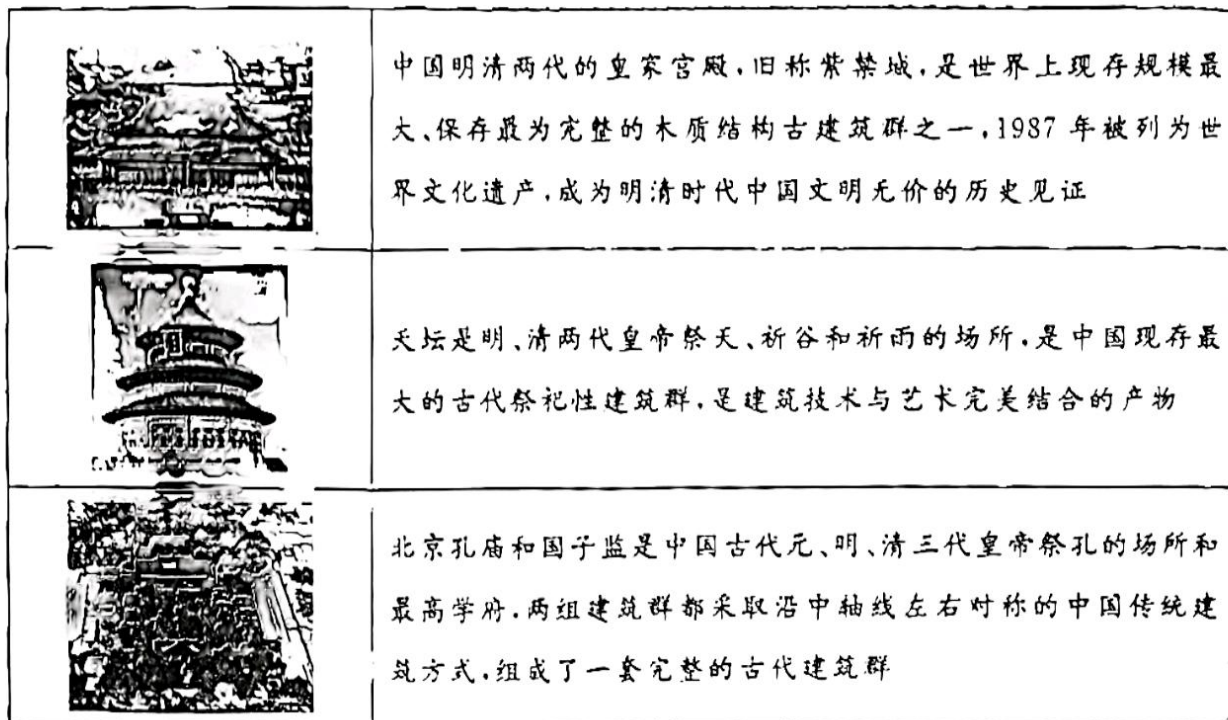 中国明清两代的皇家宫殿,旧称紫禁城,是世界上现存规模最
大、保存最为完整的木质结构古建筑群之一,1987年被列为世
界文化遗产,成为明清时代中国文明无价的历史见证
天坛是明、清两代皇帝祭天、祈谷和祈雨的场所,是中国现存最
大的古代祭祀性建筑群,是建筑技术与艺术完美结合的产物
北京孔庙和国子监是中国古代元、明、清三代皇帝祭孔的场所和
最高学府,两组建筑群都采取沿中轴线左右对称的中国传统建
筑方式,组成了一套完整的古代建筑群